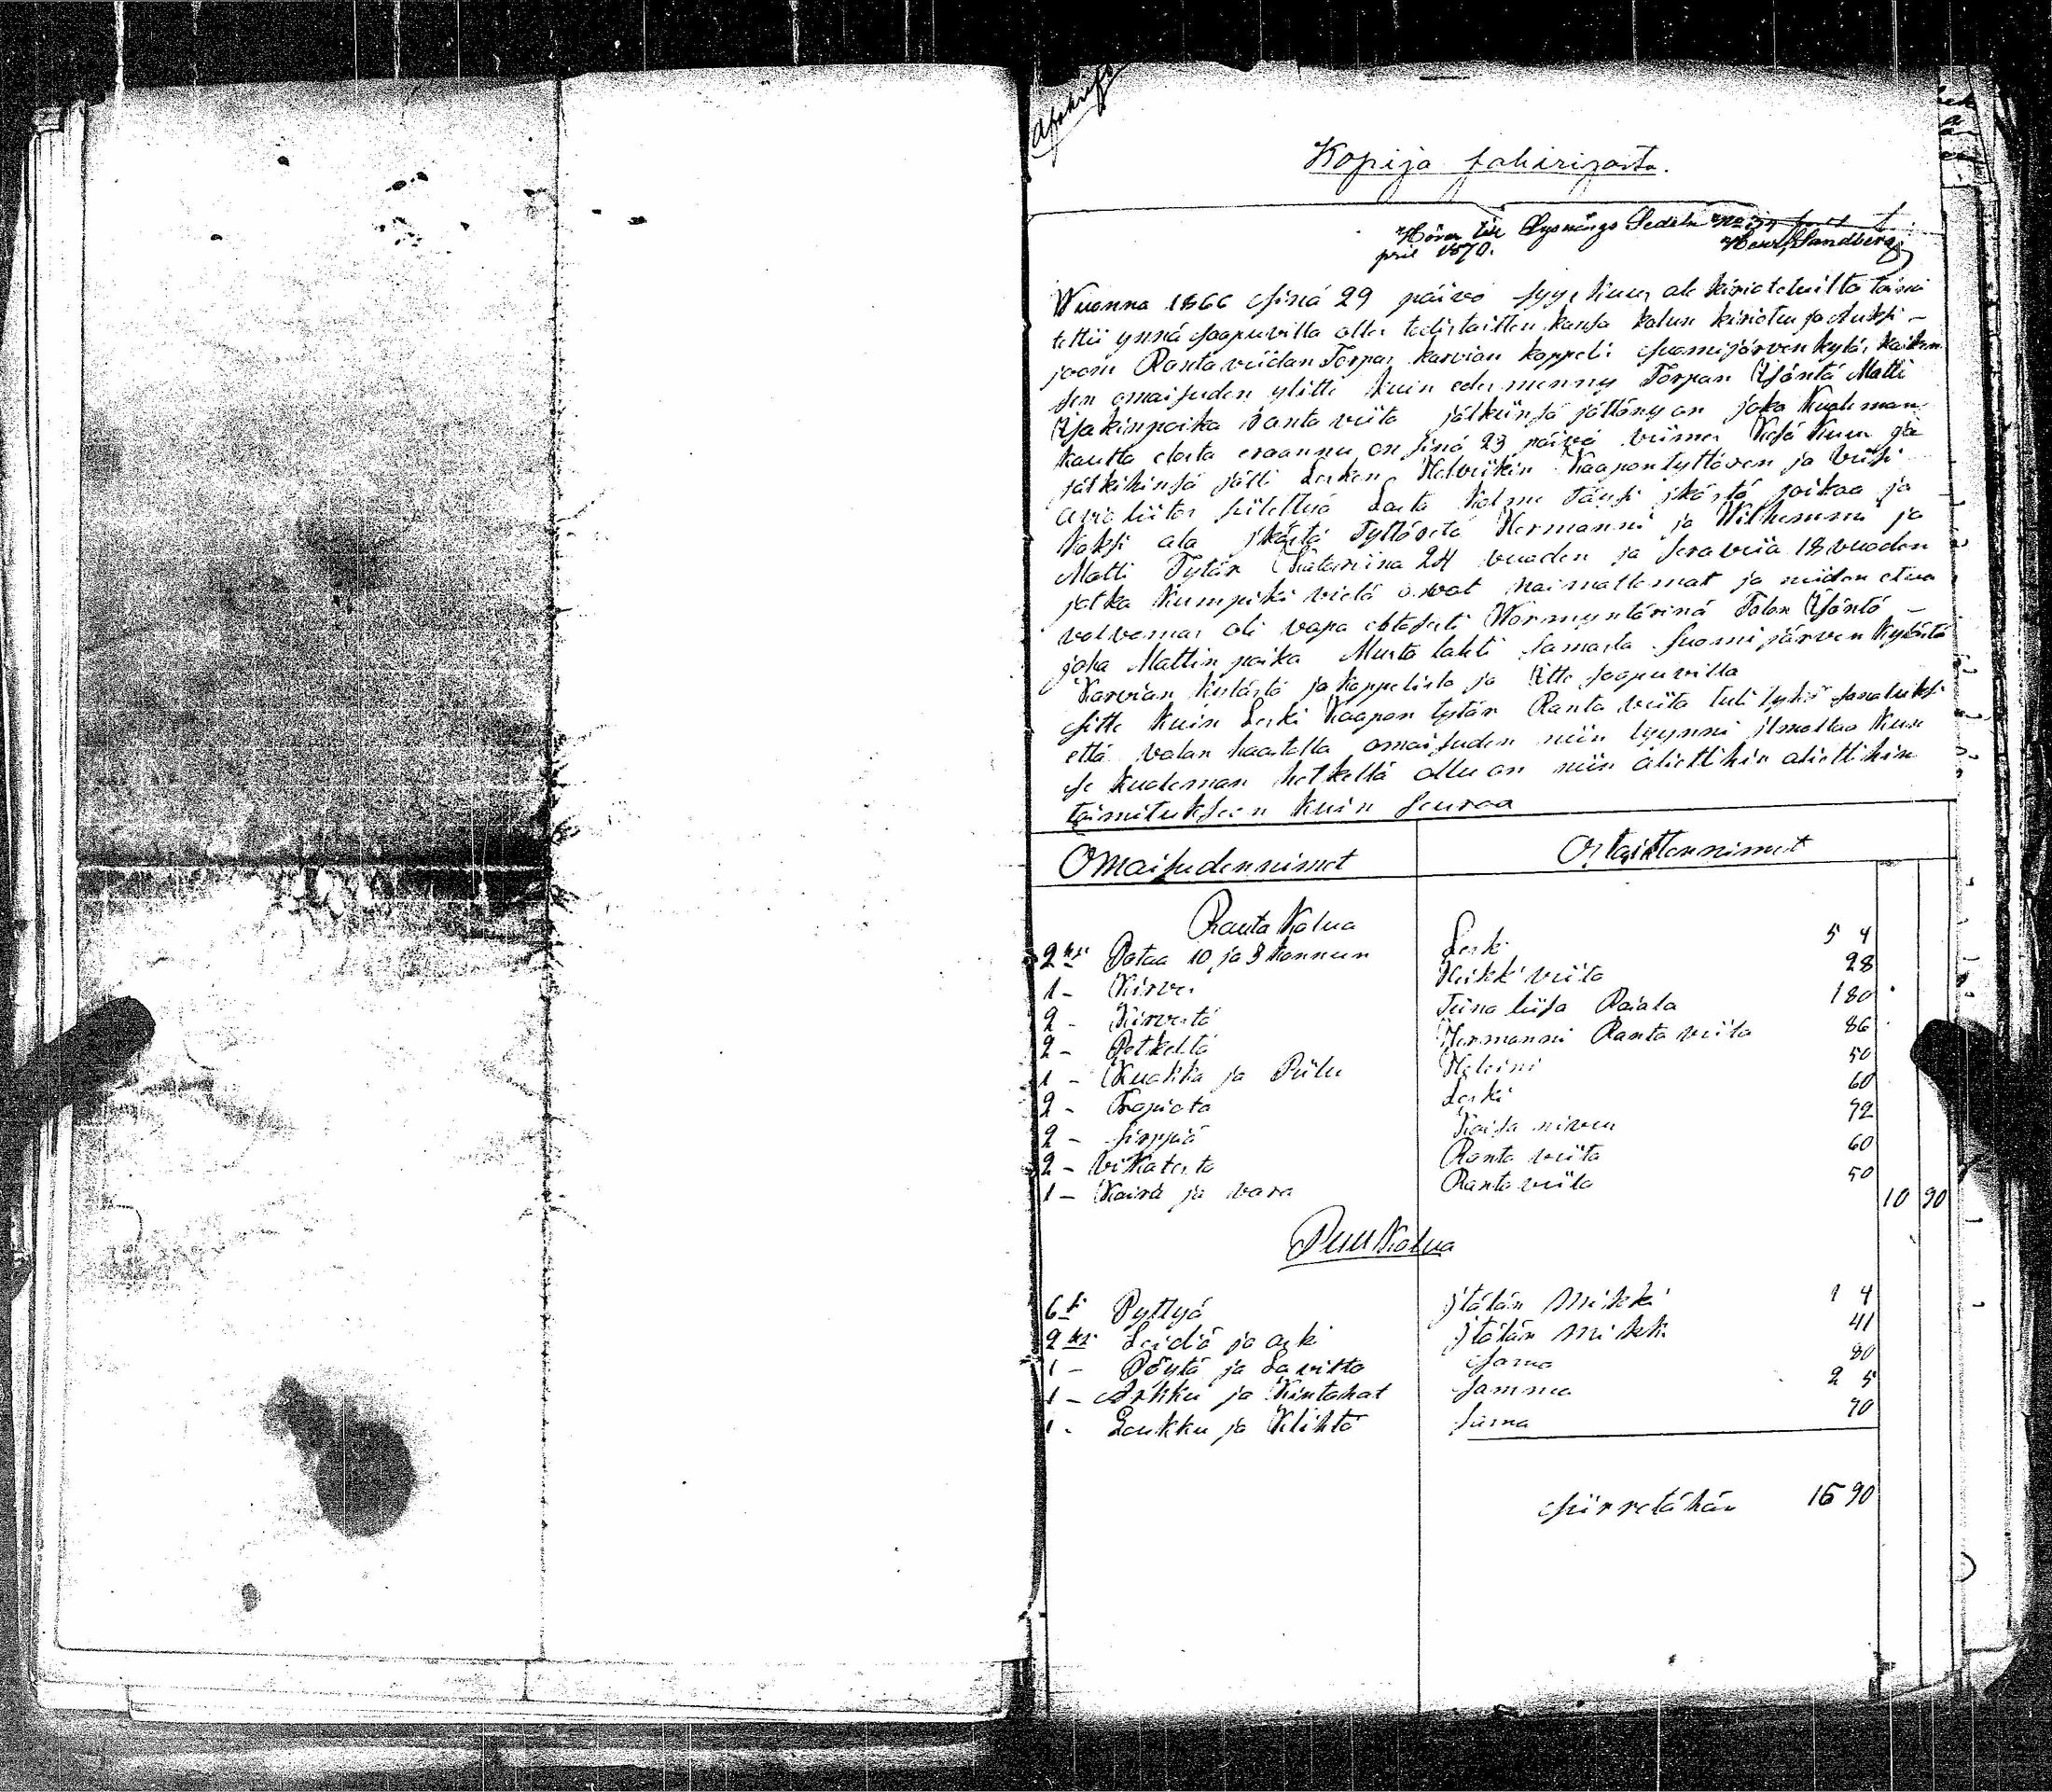 Afskrift
Kopija sakirijasta.
Hörer till Lysnings Sedeln No 37
pril 1870. Henr Sandberg
Wuonna 1866 Sinä 29 päivä syyskuus ale kirioteluilta toimi
tettii ynnä saapuvilla olle todistaitten kansa kalun kirioitus ja Auksi-
jooni Rantaviidan Torpas karvian kappeli Suomijärven kylä, kaiken
sen omaisuden ylitte kuin edesmenny Torpan Isäntä Matti
Isakinpoika Ranta viita jälkiinsä jättäny on joka kuoleman
kautta elosta eraannu on sinä 23 päivä viimes Kesä Kuus ja
jälkihinsä jätti Lesken Helviikin Kaapon tyttären ja viisi
avioliitos siitettyä Lasta Kolme täysi ikästä poikaa ja
kaksi ala ikästä Tyttäretä Hermanni ja Wilhemmi ja
Matti Tytär Katariina 24 vuoden ja Seraviia 18 vuoden
jotka kumpiki vielä ovat naimattomat ja niiden etua
valvomas oli vapa ehtosesti Wormyntärinä Talon Isäntä -
joha Mattin poika Musta lahti Samasta Suomijärven kylästä
Karvian kylästä ja kappelista ja itte saapuvilla
Sitte kuin Leski Kaapon tytär Ranta viita tuli lykö sanotuksi
että valan haastolla omaisuden niin tyynni ilmottaa kun
se kuoleman hetkellä ollu on niin aliettihin aliettihin
toimitukseen kuin seuraa
Omaisudennimet Ostaittennimet
Rauta Kalua
2 ksi Pataa 10 ja 3 kannun Leski 5 4
1 - Kirves Heikki viita 28
2 - Kirvestä Tiina liisa Rajala 180
2 - Petkeltä Hermanni Ranta viita 86
1 - Kuokka ja Piilu Heleini 50
2 - Trapiota Leski 60
2 - Sirppiä Kaisa 72
2 - Vikatesta Ranta viita 60
1 - Kaira ja vara Ranta viita 50
10 90
Puu Kalua
6 si Pyttyä jtälän Mikki 1 4
2 ksi Leidiä ja aski jtälän Mikki 41
1 - Pöytä ja Lavitta Sama 80
1 - Arkku ja Kintahat Samma 2 5
1 - Loukku ja Klihtä Sama 70
Siirretähän 16 90